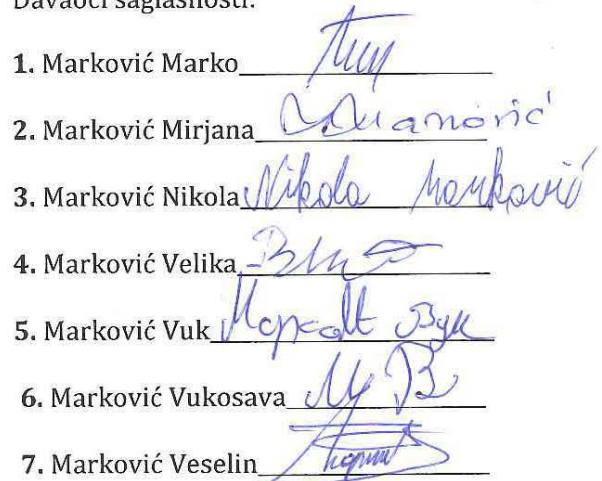 Davaoci saglasnosti:
1. Marković Marko
2. Marković Mirjana
3. Marković Nikola Nikola Marković
4. Marković Velika
5. Marković Vuk Вук
6. Marković Vukosava
7. Marković Veselin